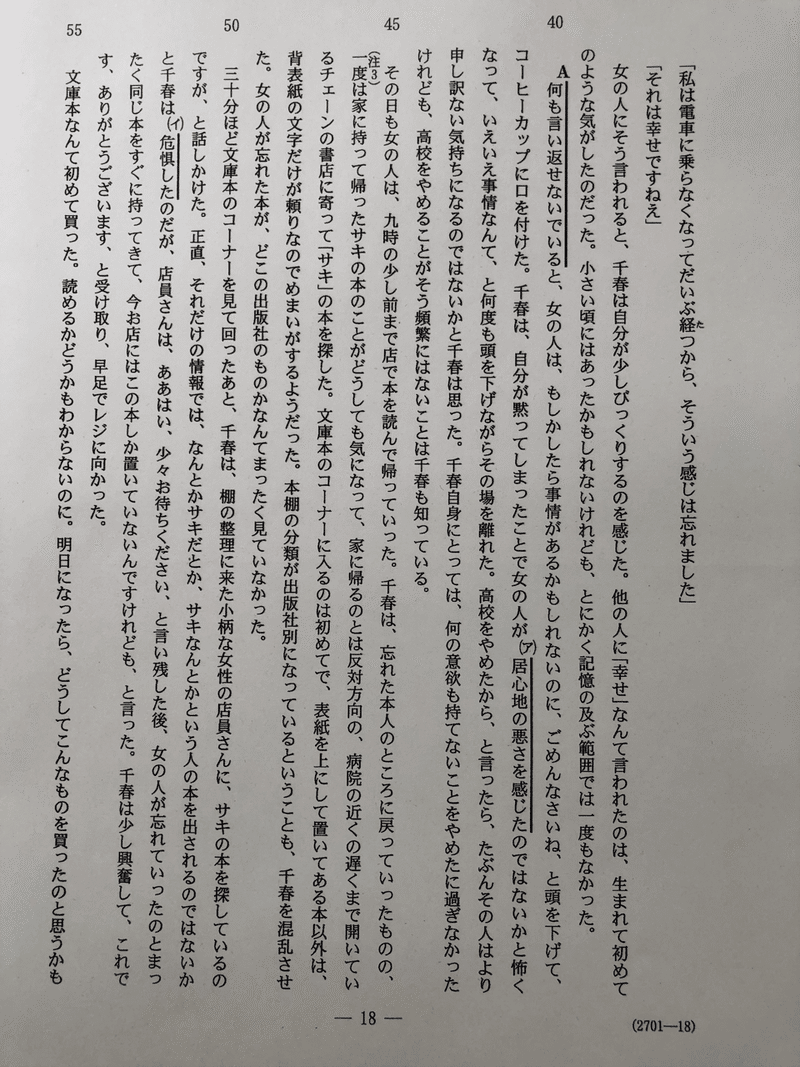 「私は電車に乗らなくなってだいぶ経つから、そういう感じは忘れました」
「それは幸せですねえ」
女の人にそう言われると、千春は自分が少しびっくりするのを感じた。他の人に「幸せ」なんて言われたのは、生まれて初めて
のような気がしたのだった。小さい頃にはあったかもしれないけれども、とにかく記憶の及ぶ範囲では一度もなかった。
A何も言い返せないでいると、女の人は、もしかしたら事情があるかもしれないのに、ごめんなさいね、と頭を下げて、
コーヒーカップに口を付けた。千春は、自分が黙ってしまったことで女の人が(ア)居心地の悪さを感じたのではないかと怖く
なって、いえいえ事情なんて、と何度も頭を下げながらその場を離れた。高校をやめたから、と言ったら、たぶんその人はより
申し訳ない気持ちになるのではないかと千春は思った。千春自身にとっては、何の意欲も持てないことをやめたに過ぎなかった
けれども、高校をやめることがそう頻繁にはないことは千春も知っている。
その日も女の人は、九時の少し前まで店で本を読んで帰っていった。千春は、忘れた本人のところに戻っていったものの、
(注3)一度は家に持って帰ったサキの本のことがどうしても気になって、家に帰るのとは反対方向の、病院の近くの遅くまで開いてい
るチェーンの書店に寄って「サキ」の本を探した。文庫本のコーナーに入るのは初めてで、表紙を上にして置いてある本以外は、
背表紙の文字だけが頼りなのでめまいがするようだった。本棚の分類が出版社別になっているということも、千春を混乱させ
た。女の人が忘れた本が、どこの出版社のものかなんてまったく見ていなかった。
三十分ほど文庫本のコーナーを見て回ったあと、千春は、棚の整理に来た小柄な女性の店員さんに、サキの本を探しているの
ですが、と話しかけた。正直、それだけの情報では、なんとかサキだとか、サキなんとかという人の本を出されるのではないか
と千春は(イ)危惧したのだが、店員さんは、ああはい、少々お待ちください、と言い残した後、女の人が忘れていったのとまっ
たく同じ本をすぐに持ってきて、今お店にはこの本しか置いていないんですけれども、と言った。千春は少し興奮して、これで
す、ありがとうございます、と受け取り、早足でレジに向かった。
文庫本なんて初めて買った。読めるかどうかもわからないのに。明日になったら、どうしてこんなものを買ったのと思うかも
40
45
50
55
— 18 —
(2701—18)